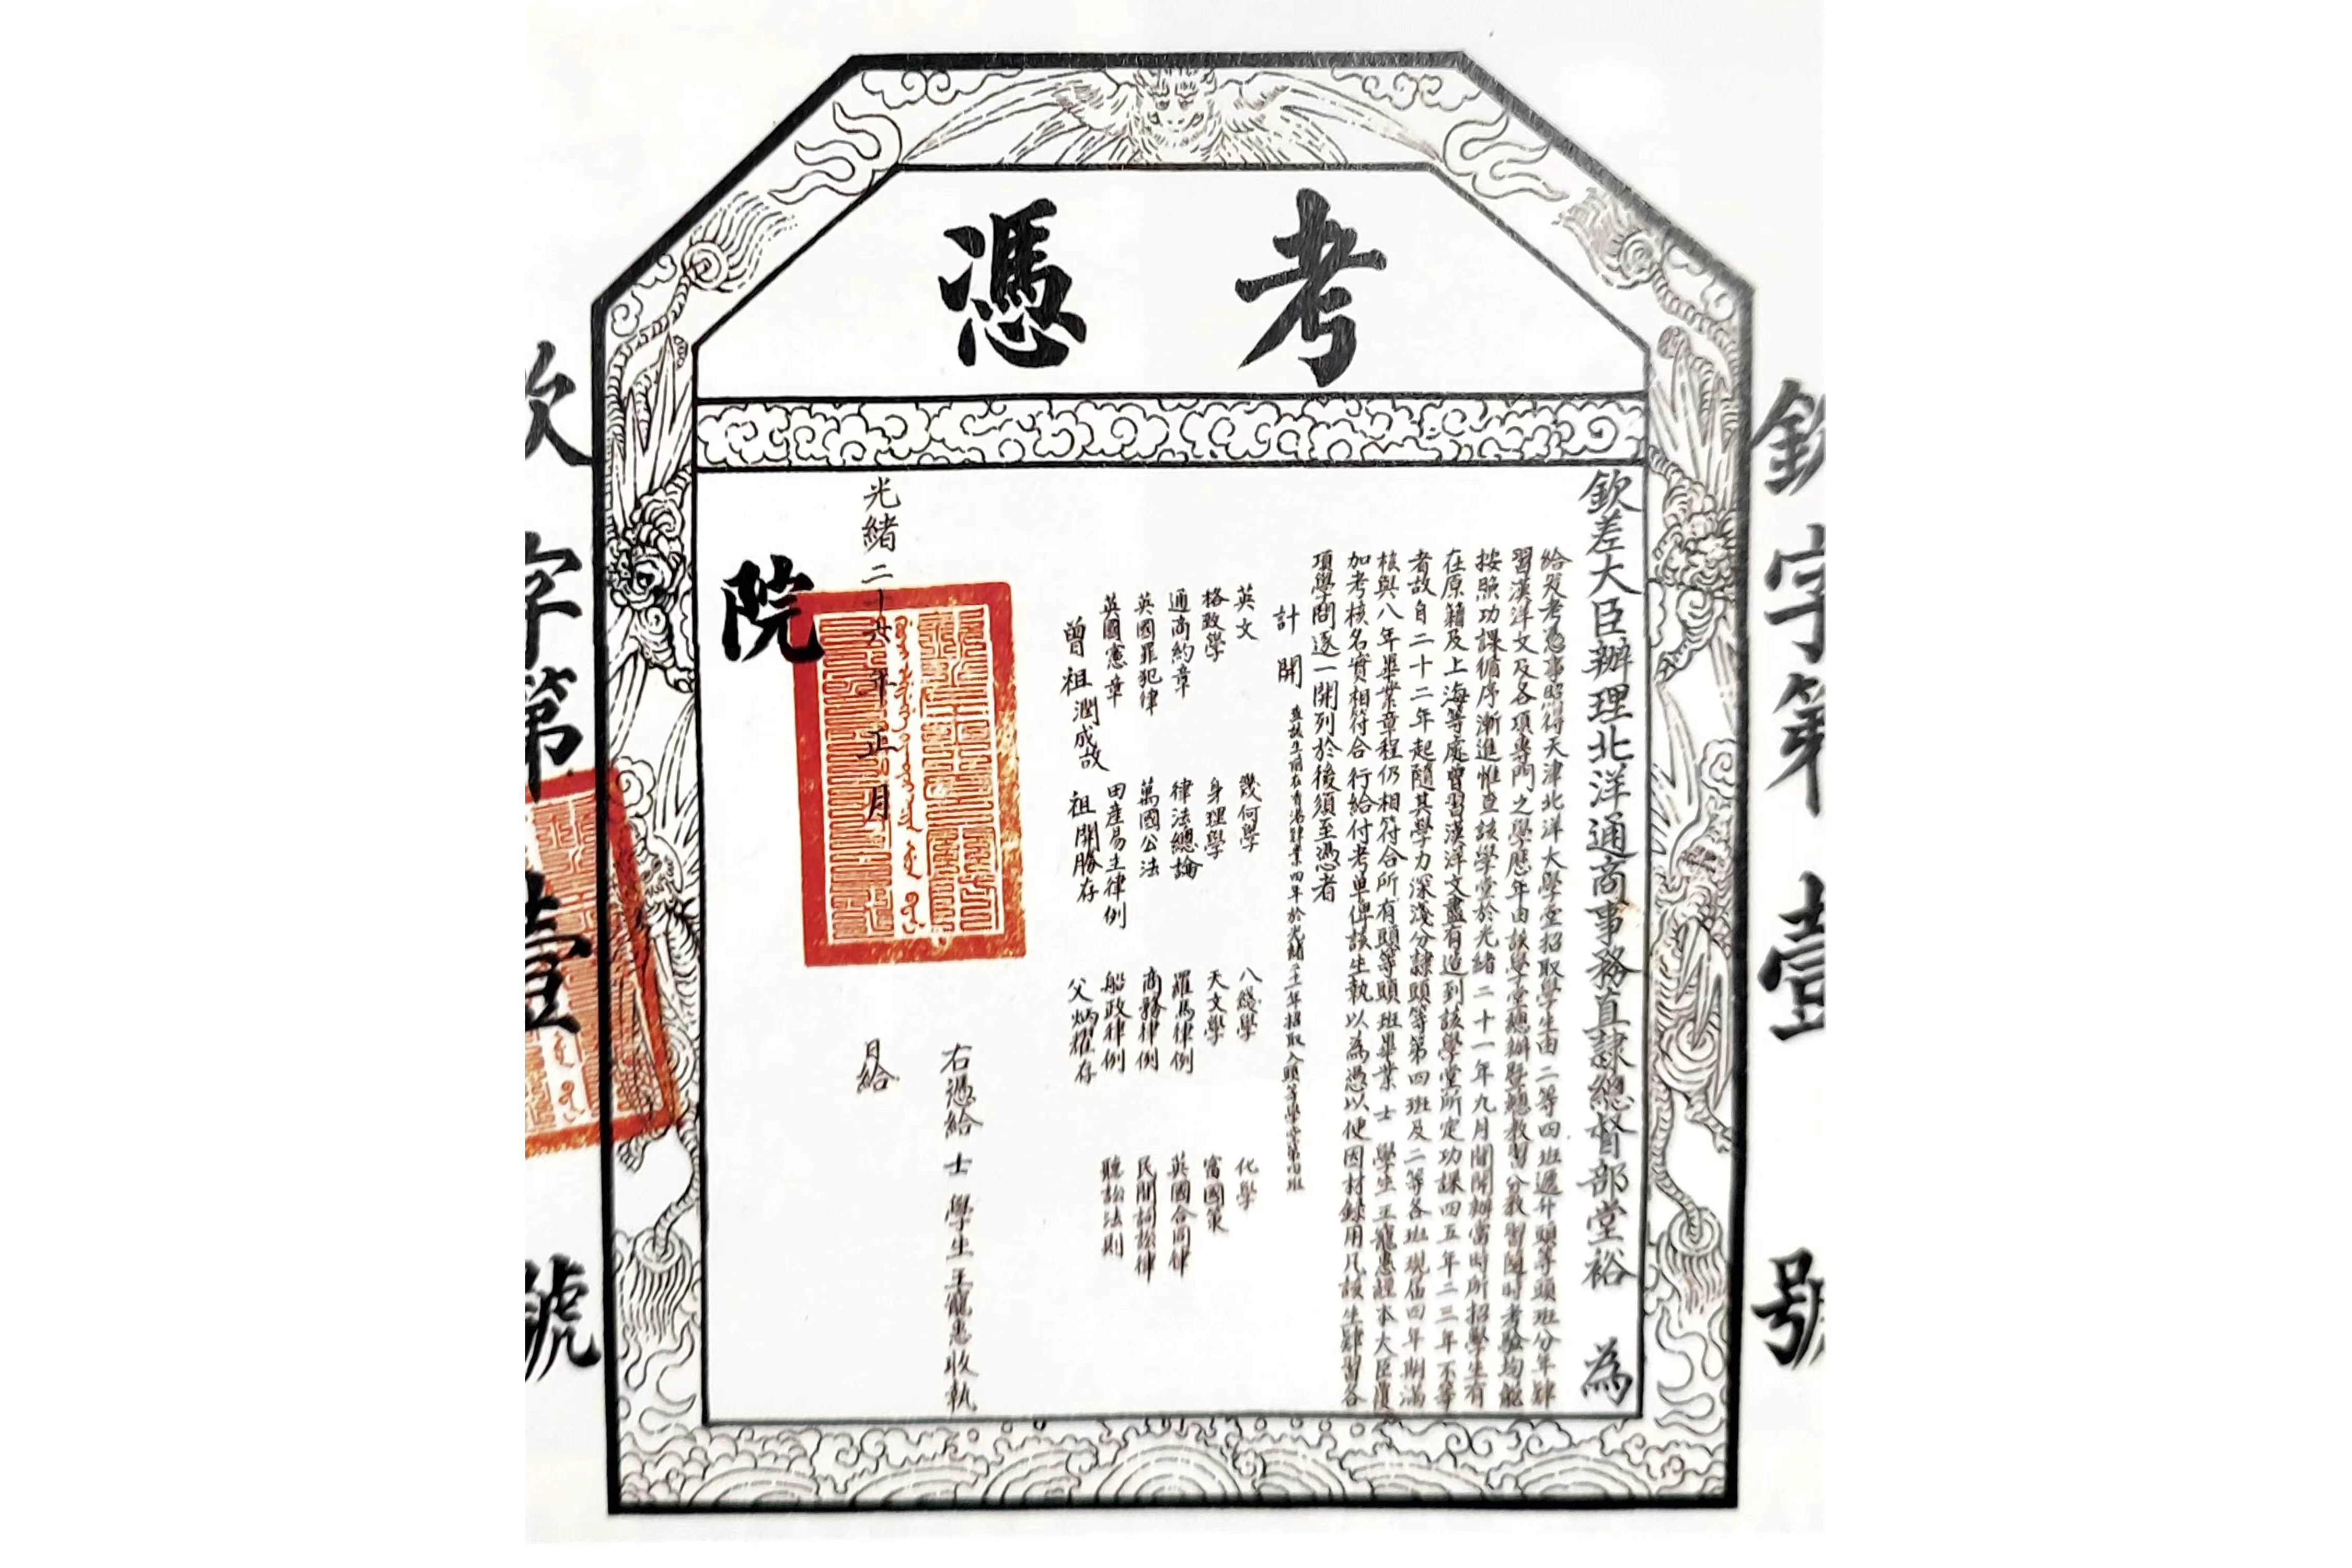 考憑
欽字第壹號
欽差大臣辦理北洋通商事務直隸總督部堂裕 為
給發考憑事照得天津北洋大學堂招取學生由二等四班遞升頭等頭班分年肄
習漢洋文及各項專門之學歷年由該學堂總辦暨總教習分教習隨時考驗均能
按照功課循序漸進惟查該學堂於光緒二十一年九月間開辦當時所招學生有
在原籍及上海等處曾習漢洋文盡有造到該學堂所定功課四五年二三年不等
者故自二十二年起隨其學力深淺分隸頭等第四班及二等各班現屆四年期滿
核與八年畢業章程仍相符合所有頭等頭班畢業士 學生王寵惠經本大臣覆
加考核名實相符合行給付考單俾該生執以為憑以便因材錄用凡該生肄習各
項學問逐一開列於後須至憑者
計開 查該生前在香港肄業四年於光緒二十一年招取入頭等學堂第四班
英文 幾何學 八綫學 化學
格致學 身理學 天文學 富國策
通商約章 律法總論 羅馬律例 英國合同律
英國罪犯律 萬國公法 商務律例 民間詞訟律
英國憲章 田產易主律例 船政律例 聽訟法則
曾祖潤成故 祖開勝存 父炳耀存
右憑給士 學生王寵惠收執
光緒二十六年正月 日給
院
欽字第壹號